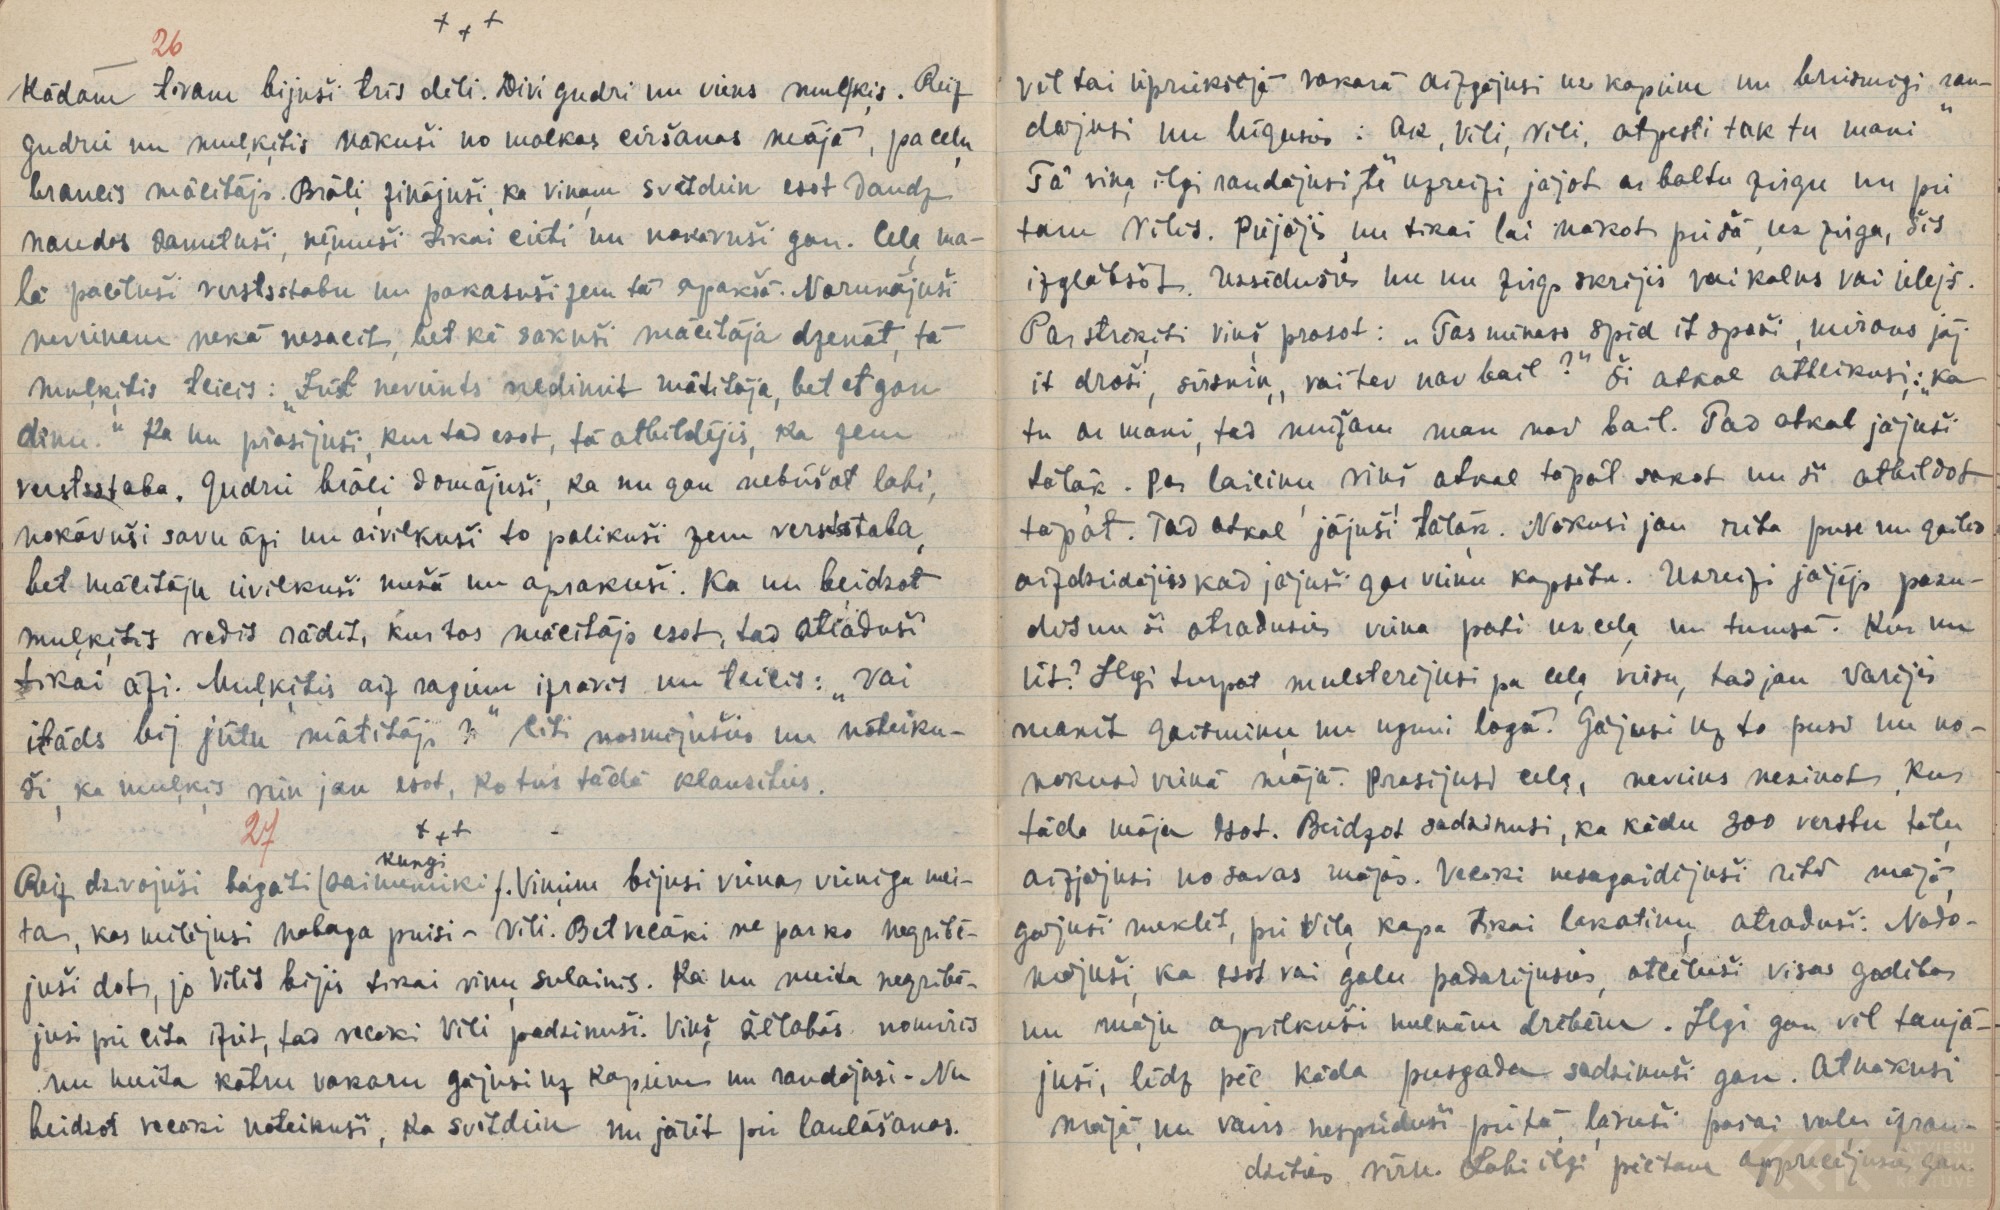 + + +
26
Kādam tēvam bijuši trīs dēli. Divi gudri un viens muļķis. Reiz
gudrie un muļķītis nākuši no malkas ciršanas mājā, pa ceļu
braucis mācītājs. Brāļi zinājuši, ka viņam svētdien esot daudz
naudas sametuši, ņēmuši tikai cieti un nokāvuši gan. Ceļa ma-
lā pacēluši verstsstabu un pakasuši zem tā apakšā. Norunājuši
nevienam nekā nesacīt, bet kā sākuši mācītāja dzenāt, tā
muļķītis teicis: „Jūs nevients nedimit mātitāja, bet et gan
dinu.“ Kā nu prasījuši, kur tad esot, tā atbildējis, ka zem
verstsstaba. Gudrie brāļi domājuši, ka nu gan nebūšot labi,
nokāvuši savu āzi un aizvilkuši to palikuši zem verstsstaba,
bet mācītāju ievilkuši mežā un aprakuši. Kā nu beidzot
muļķītis vedis rādīt, kur tas mācītājs esot, tad atraduši
tikai āzi. Muļķītis aiz ragiem izrāvis un teicis: „Vai
itāds bij jūtu mātitājs?“ Citi nosmējušies un noteiku-
ši, ka muļķis viņ jau esot, ko tur tādā klausīties.
27
+ + +
kungi
Reiz dzīvojuši bagāti (saimnieki). Viņiem bijusi viena vienīga mei-
ta, kas mīlējusi nabaga puisi - Vili. Bet vecāki ne par ko negribē-
juši dot, jo Vilis bijis tikai viņu sulainis. Kā nu meita negribē-
jusi pie cita iziet, tad vecāki Vili padzinuši. Viņš žēlabās nomiris
un meita katru vakaru gājusi uz kapiem un raudājusi - Nu
beidzot vecāki noteikuši, ka svētdien nu jāiet pie laulāšanas.
vēl tai iepriekšējā vakarā aizgājusi uz kapiem un briesmīgi rau-
dājusi un lūgusies: Ak, Vili, Vili, atpestī tak tu mani“
Tā viņa ilgi raudājusi, te uzreizi jājot ar baltu zirgu un pie
tam Vilis. Piejājis un tikai lai nākot pie šā uz zirga, šis
izglābšot. Uzsēdusies un nu zirgs skrējis vai kalns vai ieleja.
Par strēķīti viņš prasot: „Tas mēness spīd it spoži, mirons jāj
it droši, sirsniņ, vai tev nav bail?“ Ši atkal atteikusi: „ka
tu ar mani, tad nuižam man nav bail. Tad atkal jājuši
tālāk. Par laiciņu viņš atkal tāpāt sakot un ši atbildot
tāpāt. Tad atkal jājuši tālāk. Nākusi jau rīta puse un gailis
aizdziedājies kad jājuši gar vienu kapsētu. Uzreizi jājējs pazu-
dis un ši atradusies viena pati uz ceļa un tumsā. Kur nu
iet? Ilgi turpat mulsterējusi pa ceļa virsu, tad jau varējis
manīt gaismiņu un uguni logā. Gājusi uz to pusi un no-
nākusi vienā mājā. Prasījusi ceļa, neviens nezinot, kur
tāda māja esot. Beidzot sadzinusi, ka kādu 300 verstu tālu
aizjājusi no savas mājas. Vecāki nesagaidījuši rītā mājā,
gājuši meklēt, pie Viļa kapa tikai lakatiņu atraduši. Nodo-
mājuši, ka esot vai galu padarījusies, atcēluši visas godības
un māju apvilkuši melnām drēbēm. Ilgi gan vēl taujā-
juši, līdz pēc kāda pusgada sadzinuši gan. Atnākusi
mājā, nu vairs nespieduši pie tā, ļāvuši pašai vaļu izrau-
dzīties vīru. Labi ilgi pēctam apprecējusies gan.